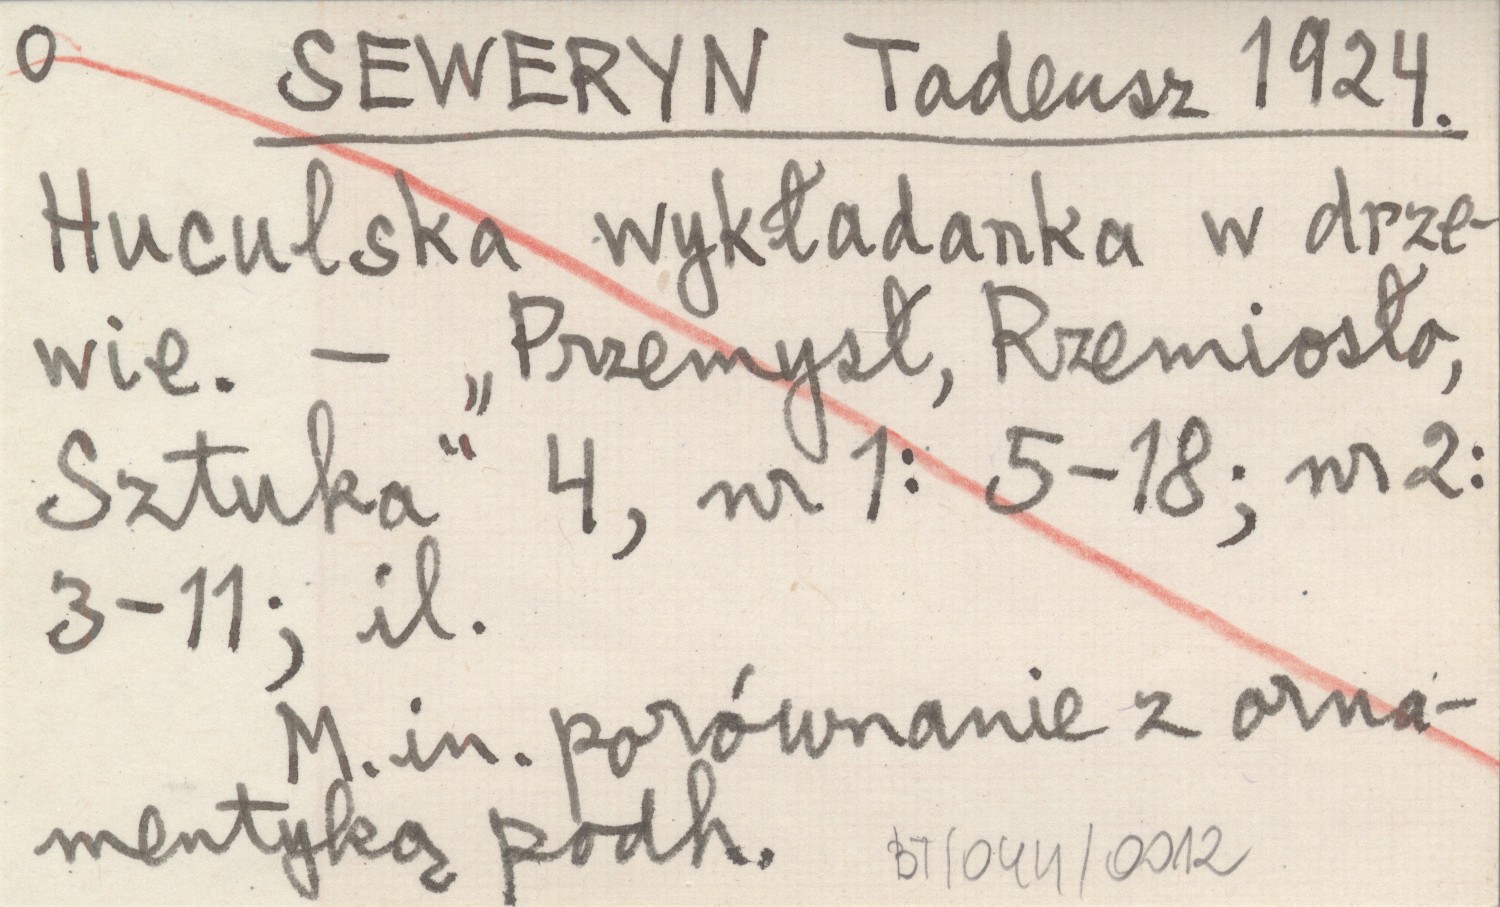 O SEWERYN Tadeusz 1924.
Huculska wykładanka w drze-
wie. — „Przemysł, Rzemiosło,
Sztuka“ 4, nr 1: 5-18; nr 2:
3-11; il.
M.in. porównanie z orna-
mentyką podh.
BT/044/0012